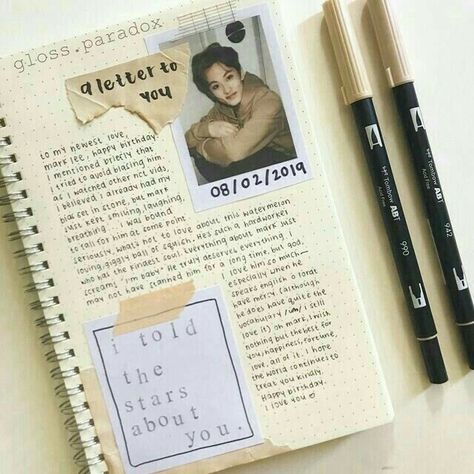 gloss.paradox
a letter to
you
08/02/2019
to my newest love,
mark lee, happy birthday
i mentioned briefly that
i tried to avoid biasing him.
as i watched other nct vids,
i believed i already had my
bias set in stone, but mark
just kept smiling, laughing,
breathing... i was bound
to fall for him at some point.
seriously, what's not to love about this watermelon
loving, giggly ball of squish. He's such a hardworker
who has the kindest soul. Everything about mark just
screams "i'm baby." He truly deserves everything. i
may not have stanned him for a long time but god,
i love him so much—
especially when he
speaks english o lordt
have mercy (although
he does have quite the
vocabulary /um/ i still
love it) oh mark, i wish
nothing but the best for
you, happiness, fortune,
love, all of it. i hope
the world continues to
treat you kindly.
Happy birthday.
i love you
i told
the
stars
about
you.
Tombow ABT
990
Tombow ABT
942